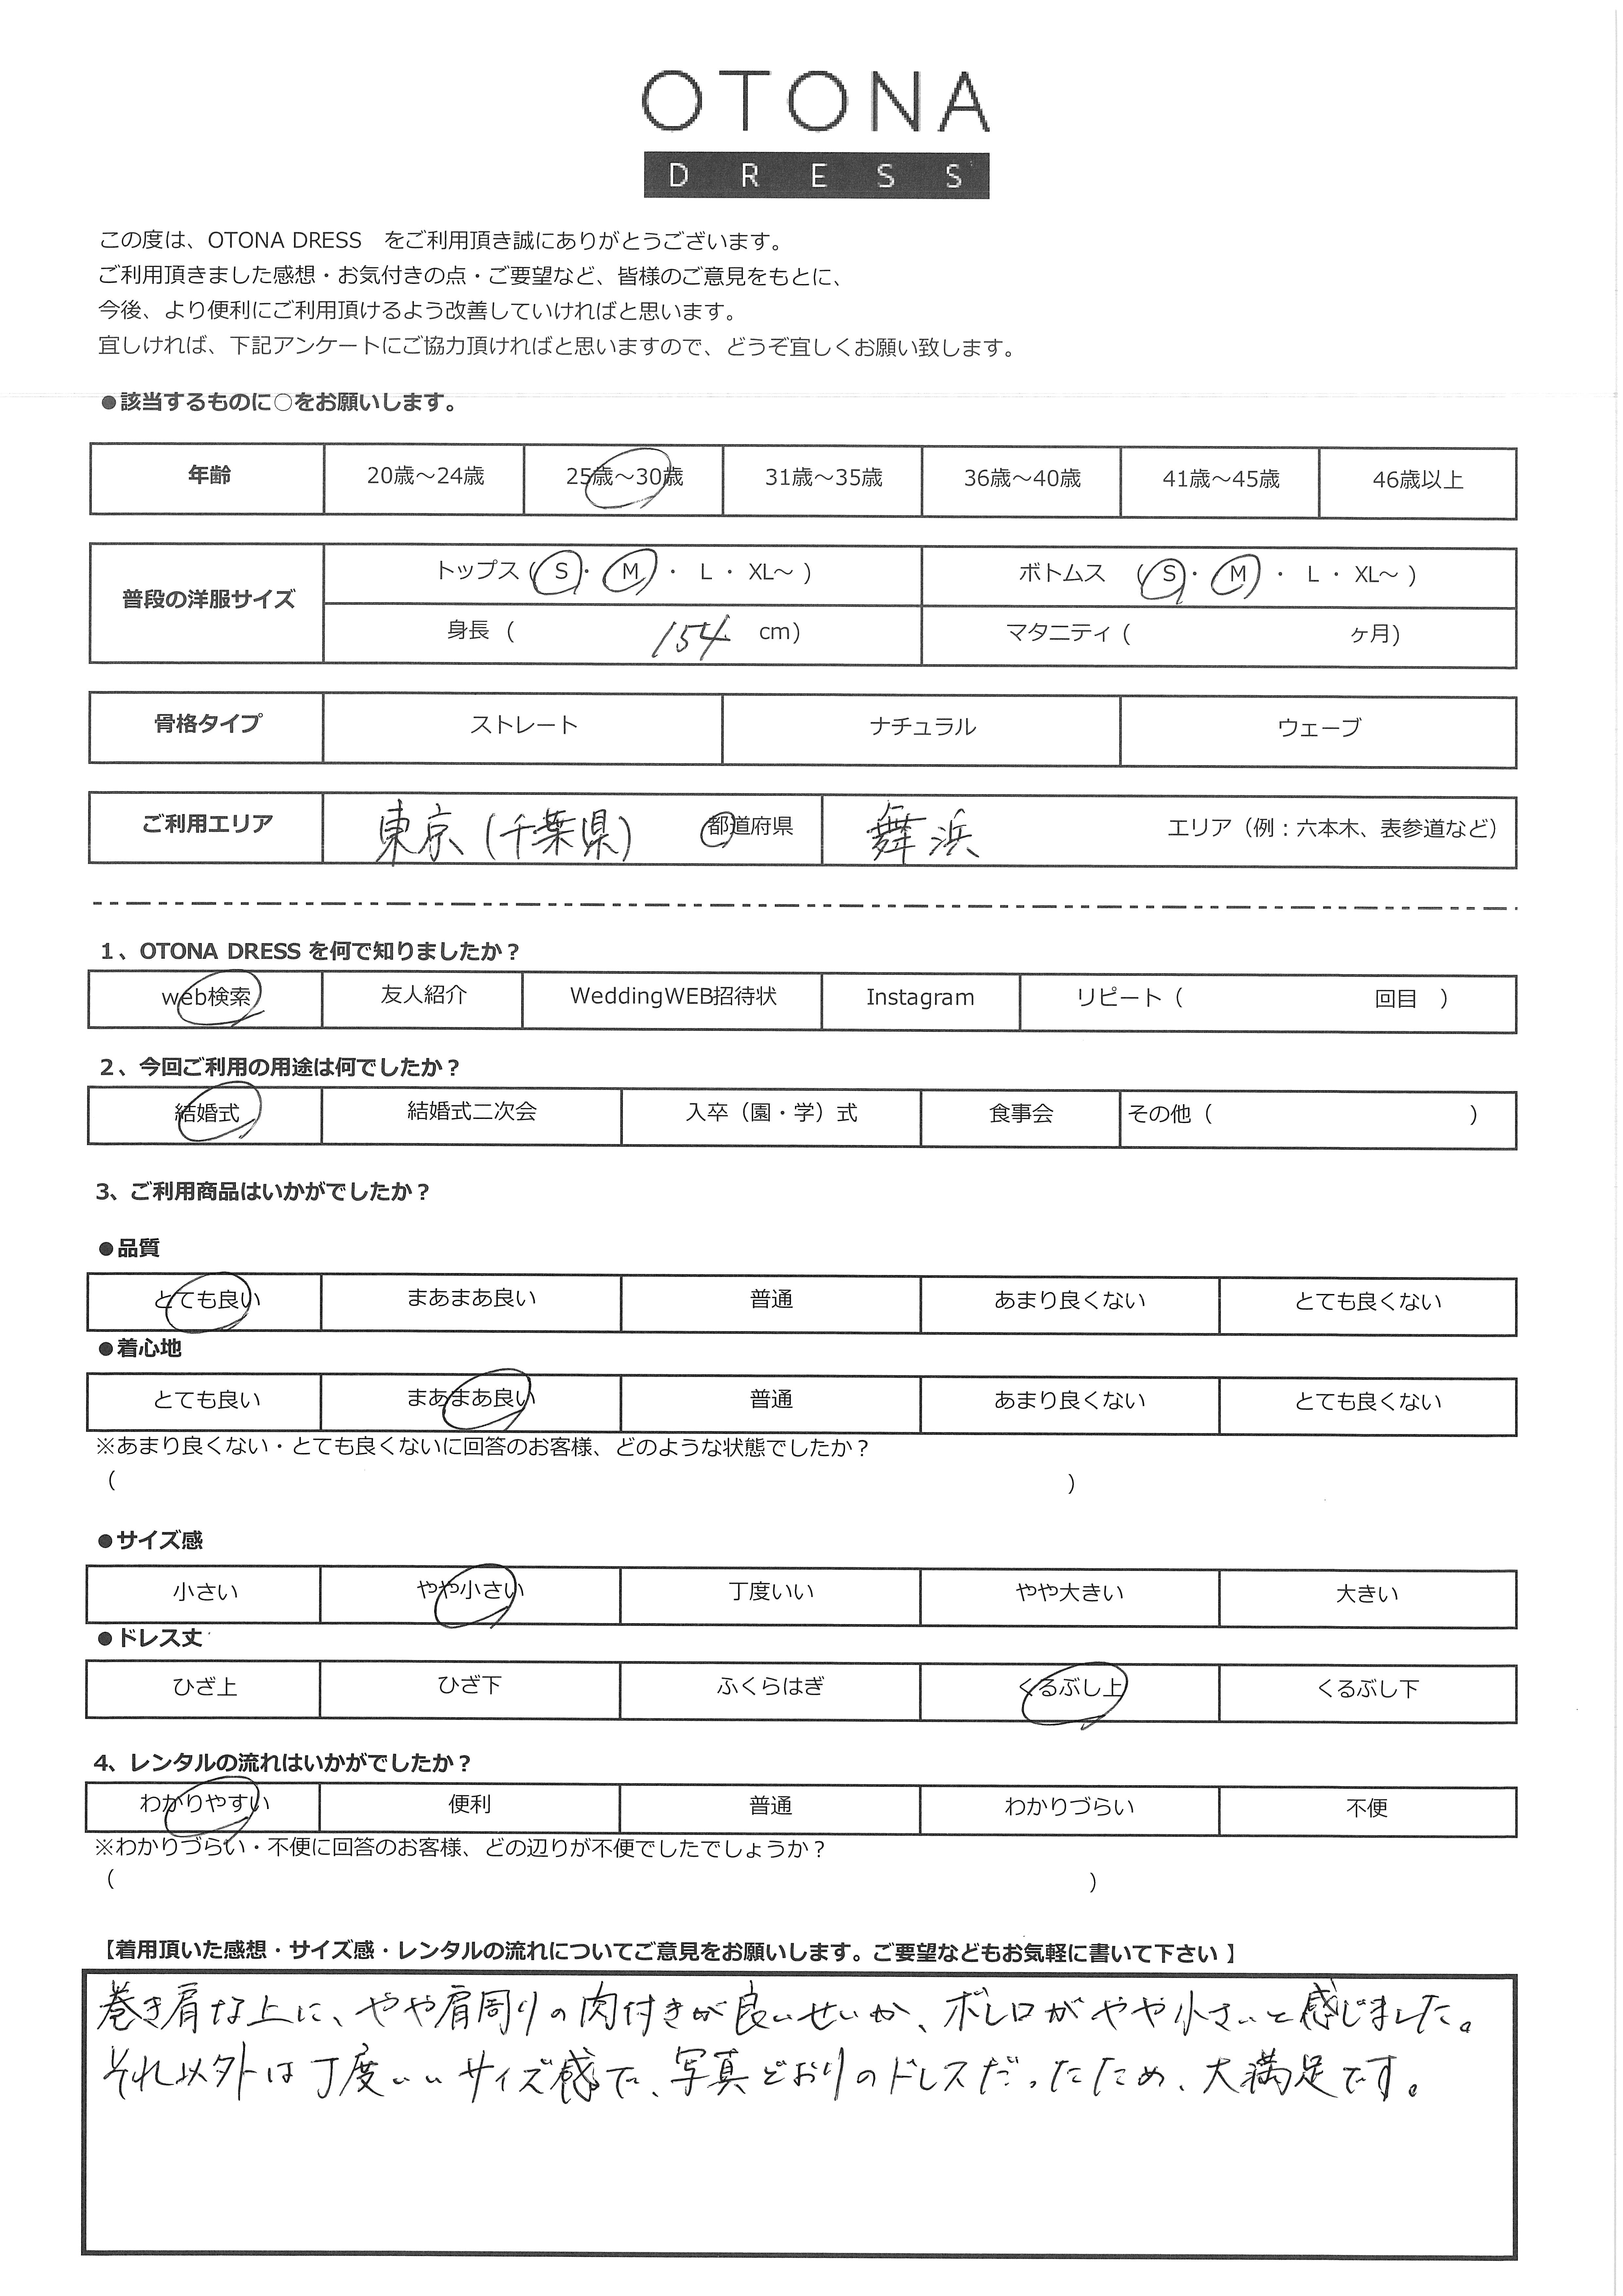 OTONA
DRESS
この度は、OTONA DRESS　をご利用頂き誠にありがとうございます。
ご利用頂きました感想・お気付きの点・ご要望など、皆様のご意見をもとに、
今後、より便利にご利用頂けるよう改善していければと思います。
宜しければ、下記アンケートにご協力頂ければと思いますので、どうぞ宜しくお願い致します。
●該当するものに○をお願いします。
年齢 20歳～24歳 25歳～30歳 31歳～35歳 36歳～40歳 41歳～45歳 46歳以上
普段の洋服サイズ トップス (S・M・L・XL～) ボトムス (S・M・L・XL～)
身長 ( 154 cm) マタニティ ( ヶ月)
骨格タイプ ストレート ナチュラル ウェーブ
ご利用エリア 東京(千葉県) 都道府県 舞浜 エリア（例：六本木、表参道など）
1、OTONA DRESS を何で知りましたか？
web検索 友人紹介 WeddingWEB招待状 Instagram リピート（ 回目 ）
2、今回ご利用の用途は何でしたか？
結婚式 結婚式二次会 入卒（園・学）式 食事会 その他（ ）
3、ご利用商品はいかがでしたか？
●品質
とても良い まあまあ良い 普通 あまり良くない とても良くない
●着心地
とても良い まあまあ良い 普通 あまり良くない とても良くない
※あまり良くない・とても良くないに回答のお客様、どのような状態でしたか？
（ ）
●サイズ感
小さい やや小さい 丁度いい やや大きい 大きい
●ドレス丈
ひざ上 ひざ下 ふくらはぎ くるぶし上 くるぶし下
4、レンタルの流れはいかがでしたか？
わかりやすい 便利 普通 わかりづらい 不便
※わかりづらい・不便に回答のお客様、どの辺りが不便でしたでしょうか？
（ ）
【着用頂いた感想・サイズ感・レンタルの流れについてご意見をお願いします。ご要望などもお気軽に書いて下さい】
巻き肩な上に、やや肩周りの肉付きが良いせいか、ボレロがやや小さいと感じました。
それ以外は丁度いいサイズ感で、写真どおりのドレスだったため、大満足です。